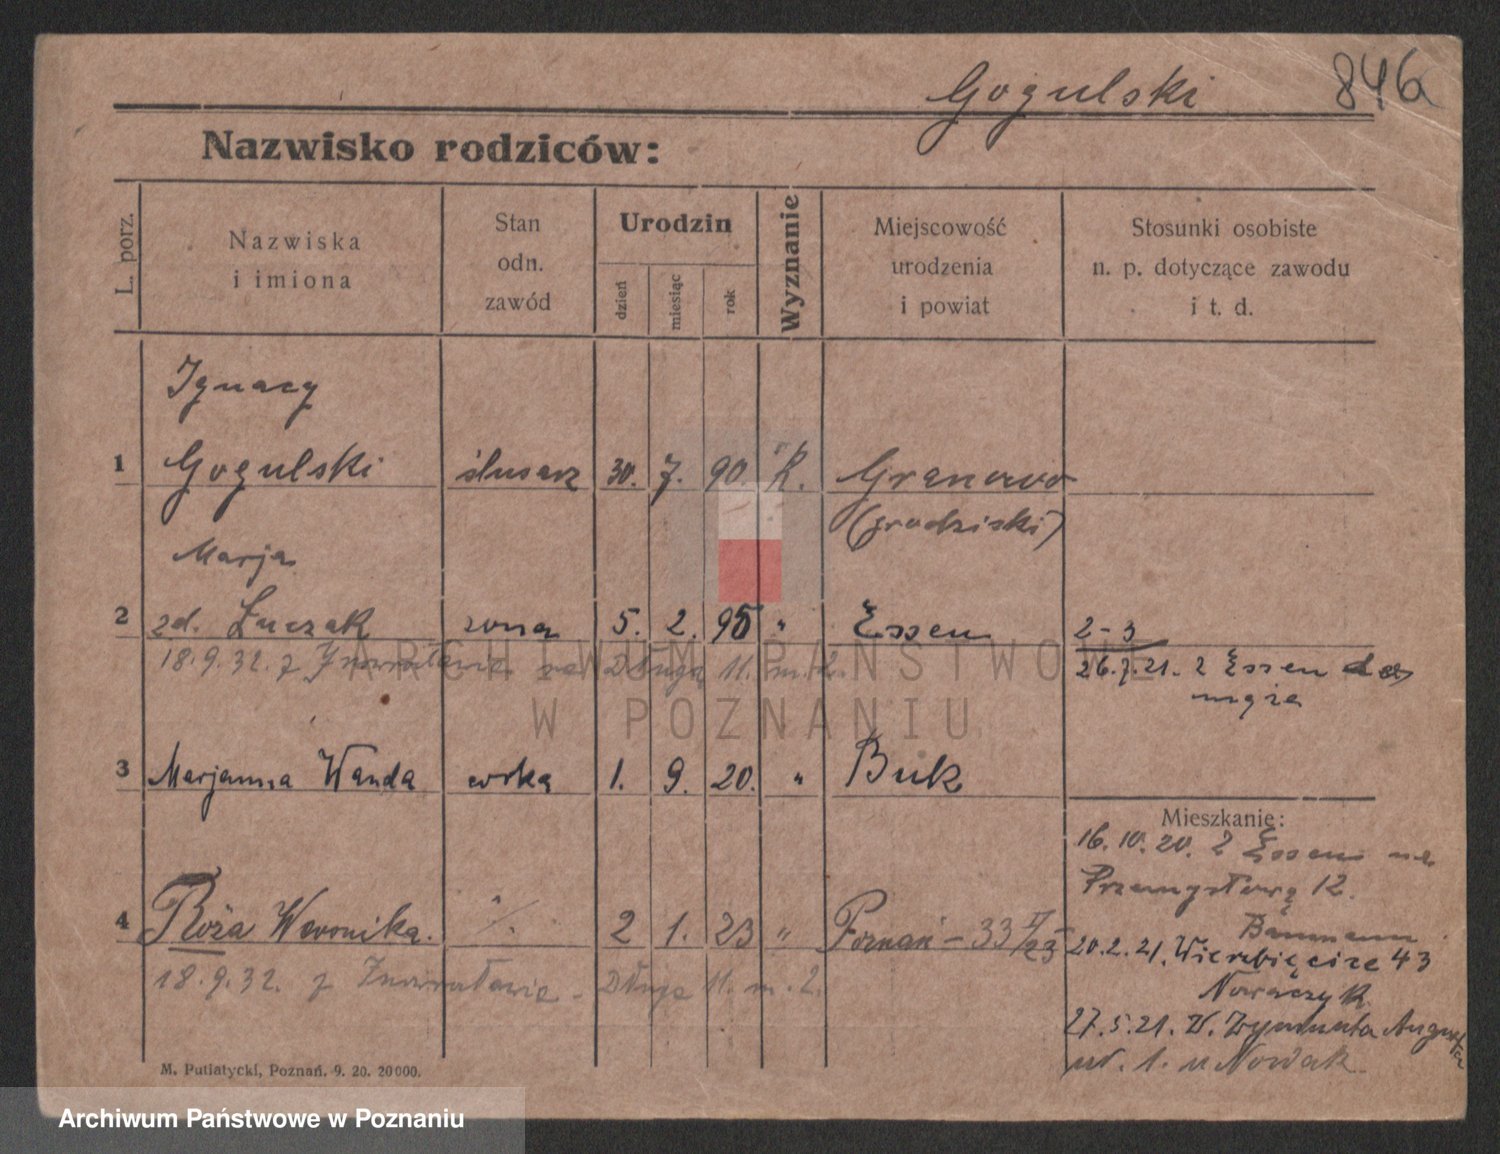 Gogulski
846a
Nazwisko rodziców:
L. porz.
Nazwiska
i imiona
Stan
odn.
zawód
Urodzin
dzień
miesiąc
rok
Wyznanie
Miejscowość
urodzenia
i powiat
Stosunki osobiste
n. p. dotyczące zawodu
i t. d.
Ignacy
1 Gogulski ślusarz 30. 7. 90. R. Granowo
(grodziski)
Marja
2 zd. Łuczak żona 5. 2. 95 " Essen 2-3
18.9.32. z Inowrocławia na Długą 11. m. 2.
26.7.21. z Essen do
męża
3 Marjanna Wanda córka 1. 9. 20. " Buk
Mieszkanie:
16.10.20. z Essen na
Przemysłową 12.
Baumann
4 Róża Weronika. "/. 2 1. 23 " Poznań - 33 II/23
20.2.21. Wierzbięcice 43
Nowaczyk
18.9.32. z Inowrocławia - Długa 11. m. 2.
27.5.21. W. Zygmunta Augusta
nr. 1. u Nowak
M. Putiatycki, Poznań. 9. 20. 20000.
ARCHIWUM PAŃSTWOWE
W POZNANIU
Archiwum Państwowe w Poznaniu